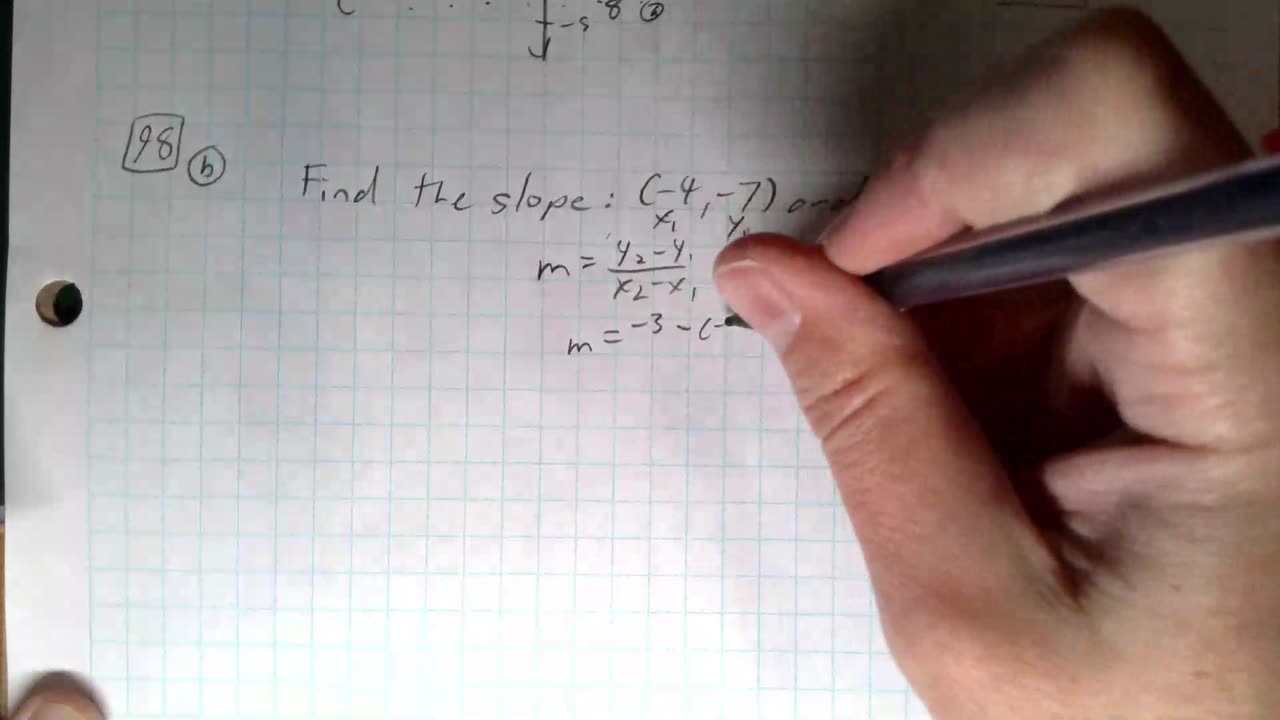 -5 8
98 b Find the slope: (-4, -7) and
x₁ y₁
m = y₂-y₁ / x₂-x₁
m = -3 - (-